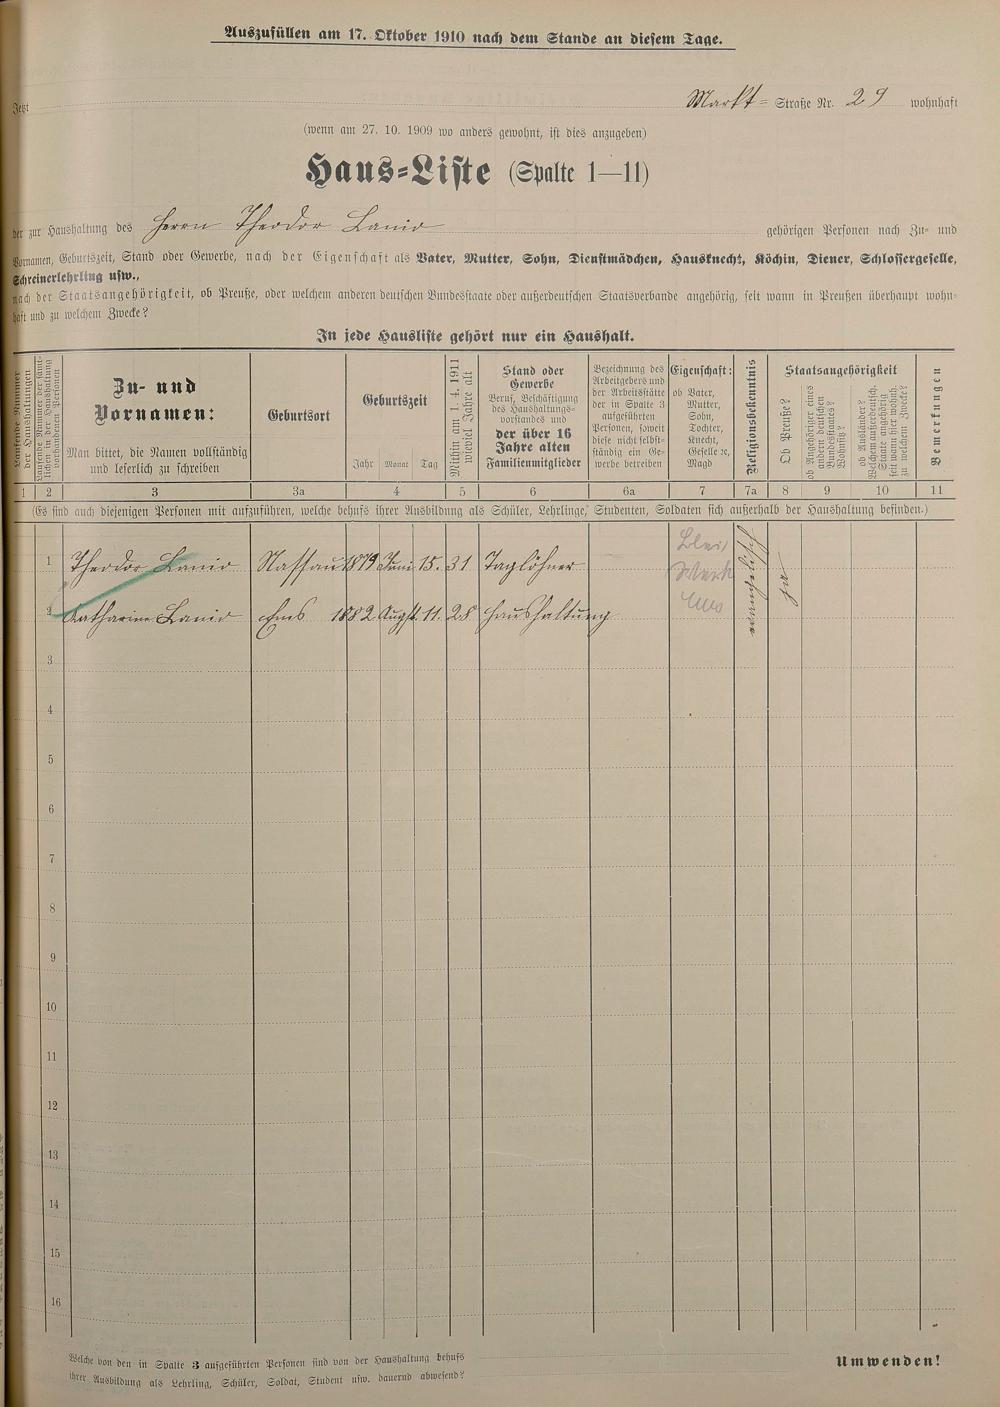 Auszufüllen am 17. Oktober 1910 nach dem Stande an diesem Tage.
Jetzt Markt- Straße Nr. 29 wohnhaft
(wenn am 27. 10. 1909 wo anders gewohnt, ist dies anzugeben)
Haus-Liste (Spalte 1—11)
der zur Haushaltung des Herrn Theodor Lanio gehörigen Personen nach Zu- und
Vornamen, Geburtszeit, Stand oder Gewerbe, nach der Eigenschaft als Vater, Mutter, Sohn, Dienstmädchen, Hausknecht, Köchin, Diener, Schlossergeselle,
Schreinerlehrling usw.,
nach der Staatsangehörigkeit, ob Preuße, oder welchem anderen deutschen Bundesstaate oder außerdeutschen Staatsverbande angehörig, seit wann in Preußen überhaupt wohn-
haft und zu welchem Zwecke?
In jede Hausliste gehört nur ein Haushalt.
Laufende Nummer
der Haushaltungen
Laufende Nummer der sämt-
lichen in der Haushaltung
vorhandenen Personen
Zu- und
Vornamen:
Man bittet, die Namen vollständig
und leserlich zu schreiben
Geburtsort
Geburtszeit
Jahr Monat Tag
Mithin am 1. 4. 1911
wieviel Jahre alt
Stand oder
Gewerbe
Beruf, Beschäftigung
des Haushaltungs-
vorstandes und
der über 16
Jahre alten
Familienmitglieder
Bezeichnung des
Arbeitgebers und
der Arbeitsstätte
der in Spalte 3
aufgeführten
Personen, soweit
diese nicht selbst-
ständig ein Ge-
werbe betreiben
Eigenschaft:
ob Vater,
Mutter,
Sohn,
Tochter,
Knecht,
Geselle ꝛc,
Magd
Religionsbekenntnis
Staatsangehörigkeit
Ob Preuße?
ob Angehöriger eines
andern deutschen
Bundesstaates?
Wohnsitz?
ob Ausländer?
Welchem außerdeutsch.
Staate angehörig
seit wann hier wohnh.
zu welchem Zwecke?
Bemerkungen
1 2 3 3a 4 5 6 6a 7 7a 8 9 10 11
(Es sind auch diejenigen Personen mit aufzuführen, welche behufs ihrer Ausbildung als Schüler, Lehrlinge, Studenten, Soldaten sich außerhalb der Haushaltung befinden.)
1 Theodor Lanio Nassau 1879 Juni 15. 31 Taglöhner
Blei
Werk
Ems
evangelisch
ja
2 Katharine Lanio Ems 1882 Augst. 11. 28 Haushaltung
3
4
5
6
7
8
9
10
11
12
13
14
15
16
Welche von den in Spalte 3 aufgeführten Personen sind von der Haushaltung behufs
ihrer Ausbildung als Lehrling, Schüler, Soldat, Student usw. dauernd abwesend?
Umwenden!